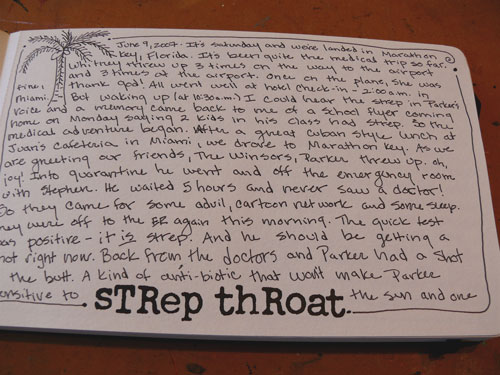 June 9, 2007. It's saturday and we're landed in Marathon
Key, Florida. It's been quite the medical trip so far.
Whitney threw up 3 times on the way to the airport
and 3 times at the airport. Once on the plane, she was
fine,
thank god! All went well at hotel check-in - 2:00 a.m. in
Miami.
But waking up (at 10:30 a.m.) I could hear the strep in Parker's
voice and a memory came back to me of a school flyer coming
home on Monday saying 2 kids in his class had strep. So the
medical adventure began. After a great cuban style lunch at
Juan's Cafeteria in Miami, we drove to Marathon Key. As we
are greeting our friends, The Winsors, Parker threw up. Oh,
joy! Into quarantine he went and off the emergency room
with Stephen. He waited 5 hours and never saw a doctor!
So they came for some advil, cartoon network and some sleep.
They were off to the ER again this morning. The quick test
was positive - it is strep. And he should be getting a
shot right now. Back from the doctors and Parker had a shot
the butt. A kind of anti-biotic that won't make Parker
sensitive to sTRep thRoat the sun and one